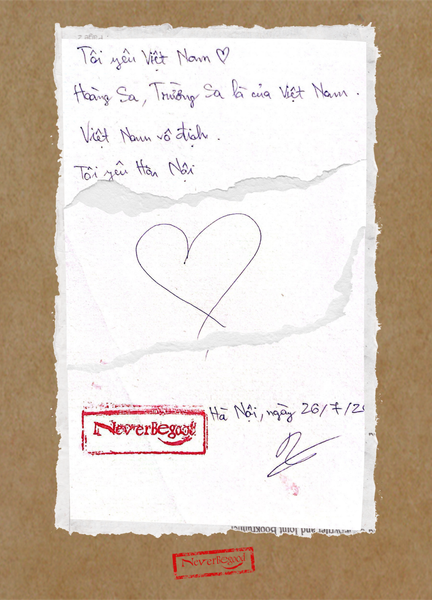 Tôi yêu Việt Nam ♡
Hoàng Sa, Trường Sa là của Việt Nam.
Việt Nam vô địch.
Tôi yêu Hà Nội
Hà Nội, ngày 26/7/20
NeverBegood
NeverBegood